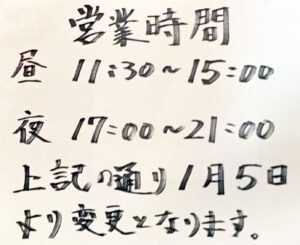 営業時間
昼 11:30~15:00
夜 17:00~21:00
上記の通り1月5日
より変更となります。